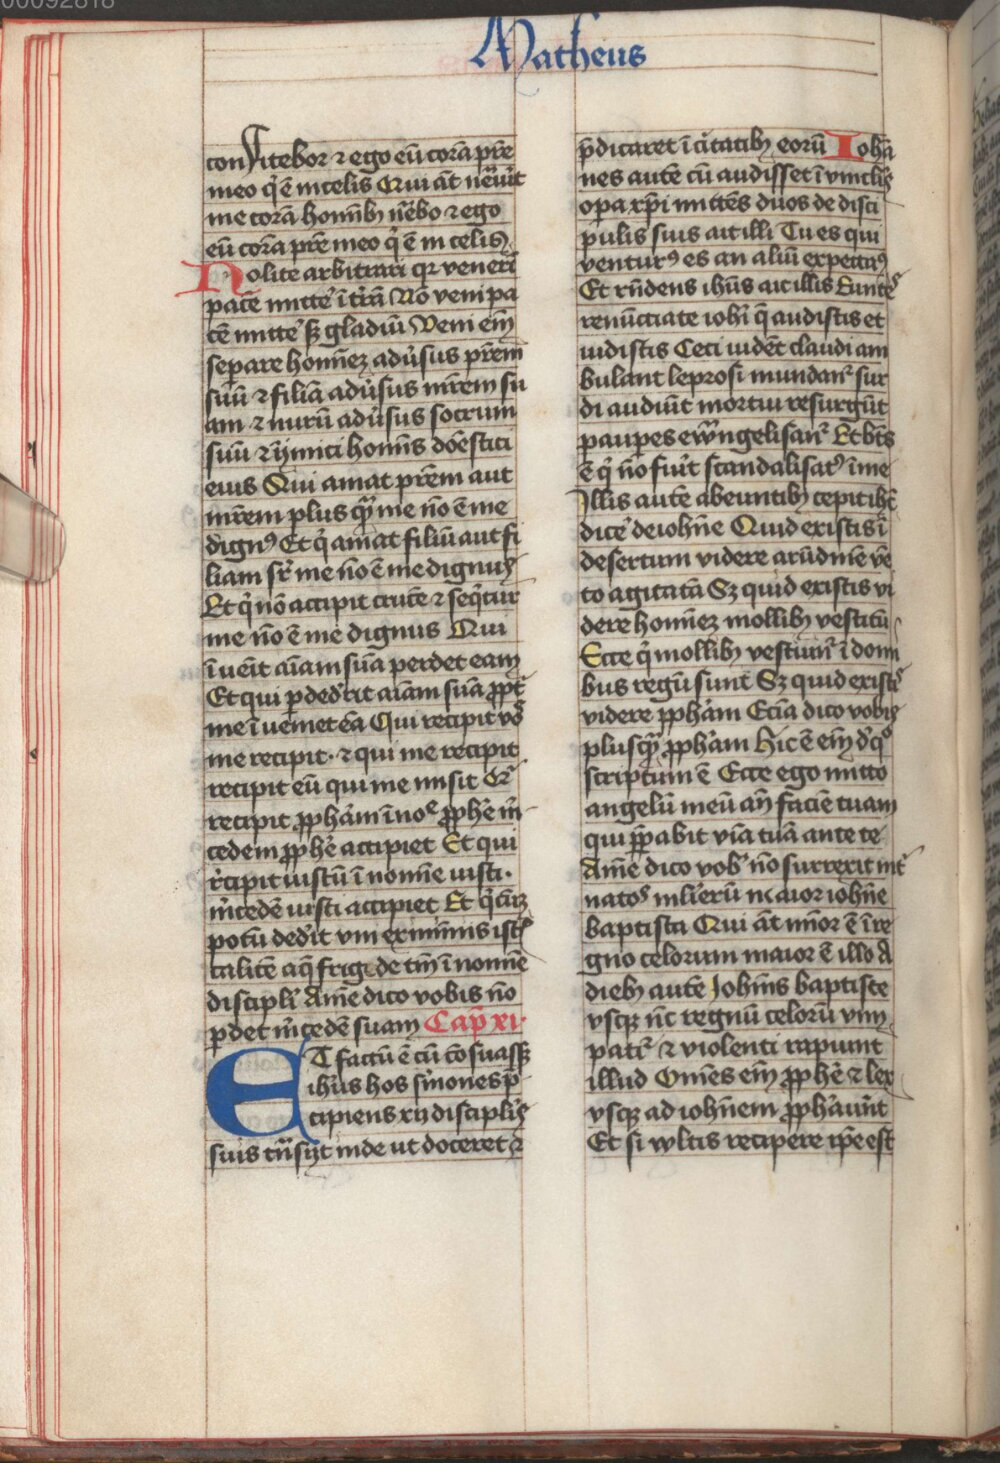 00092818
Matheus
confitebor ⁊ ego eū corā pr̄e
meo q̇ ē in celis Qui āt neg̃u̇it
me corā homīb; n̄ebo ⁊ ego
eū corā pr̄e meo q̇ ē in celis
Nolite arbitrari qꝛ venerī
pacē mitte᷒ ī tr̄ā Nō veni pa
cē mitte᷒ sꝫ gladiū Veni em̄
separe homīeꝫ adu̇sus pr̄em
suū ⁊ filiā adu̇sus mr̄em su
am ⁊ nurū adu̇sus socrum
suū ⁊ inimici homīs dōestici
eius Qui amat pr̄em aut
mr̄em plus qꝫ̃ me nō ē me
dignꝰ Et q̇ amat filiū aut fi
liam sr̄ me nō ē me dignus
Et q̇ nō accipit crucē ⁊ seq̇tur
me nō ē me dignus Qui
īuēit aīam suā perdet eam
Et qui ꝑded᷒it aīam suā ꝓpt᷒
me īueniet eā Qui recipit vos
me recipit · ⁊ qui me recipit
recipit eū qui me misit Qi
recipit ꝓpham ī noīe ꝓphē m᷒
cedem ꝓphē accipiet Et qui
recipit iustū ī nomīe iusti ·
m᷒cedē iusti accipiet Et q̇cūqꝫ
potū dederit vni ex mīmis istis
calicē aq̄ frigide tm̄ ī nomīe
discipli Amē dico vobis nō
ꝑdet m᷒cedē suam Cap̄ xi ·
ET factū ē cū cōsūmasꝫ
ihūs hos sm᷒ones p̄
cipiens xij disciplis
suis trāsijt inde ut doceret ⁊
p̄dicaret ī ciƚatib; eorū Iohā
nes autē cū audisset ī vinclis
oꝑa xp̄i mittēs duos de disci
pulis suis ait illi Tu es qui
venturꝰ es an aliū expectamꝰ
Et rn̄dens ihūs ait illis Euntes
renūciate iohī q̄ audistis et
uidistis Ceci uidēt claudi am
bulant leprosi mundant᷒ sur
di audiūt mortui resurgūt
pauꝑes ewāngelisant᷒ Et bt̄s
ē q̇ nō fuit scandalisatꝰ ī me
Illis autē abeuntib; cepit ihc̄
dice᷒ de iohn̄e Quid existis ī
desertum videre arūdinē vē
to agitatā Sꝫ quid existis vi
dere homīeꝫ mollib; vestitū
Ecce q̇ mollib; vestiunt᷒ ī domi
bus regū sunt Sꝫ quid existis
videre ꝓpham Eciā dico vobis
plusqꝫ̃ ꝓpham Hic ē em̄ d᷒ quo
scriptum ē Ecce ego mitto
angelū meū an̄ faciē tuam
qui p̄pabit viā tuā ante te
Amē dico vob᷒ nō surrexit int᷒
natos mlierū maior iohn̄e
baptista Qui āt minor ē ī re
gno celorum maior ē illo A
dieb; autē Johīnis baptiste
vsqꝫ nc̄ regnū celorū vim
patit᷒ ⁊ violenti rapiunt
illud Omēs em̄ ꝓphē ⁊ lex
vsqꝫ ad iohn̄em ꝓphaūnt
Et si wltis recipere ip̄e est